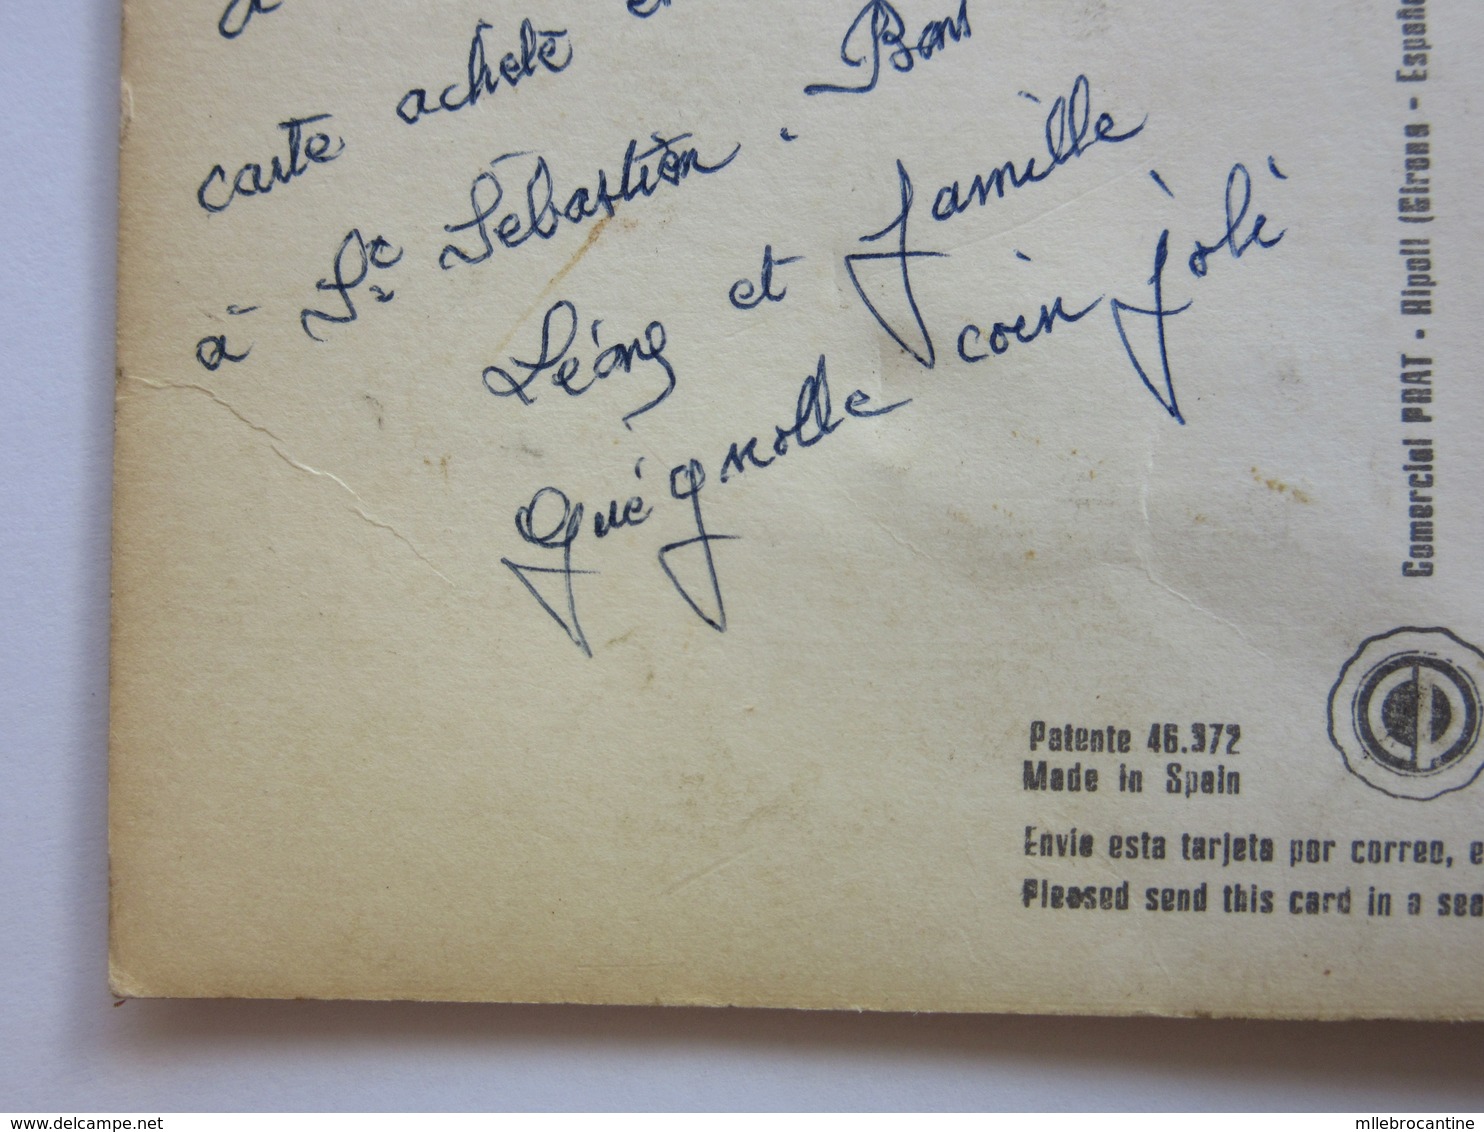 à
carte achete
à Ste Sébastien. Bons
Léong et famille
Quégnolle coin joli
Comercial PRAT - Ripoll (Girona - Españ
Patente 46.372
Made in Spain
Envie esta tarjeta por correo, e
Pleased send this card in a sea
delcampe.net
mllebrocantine